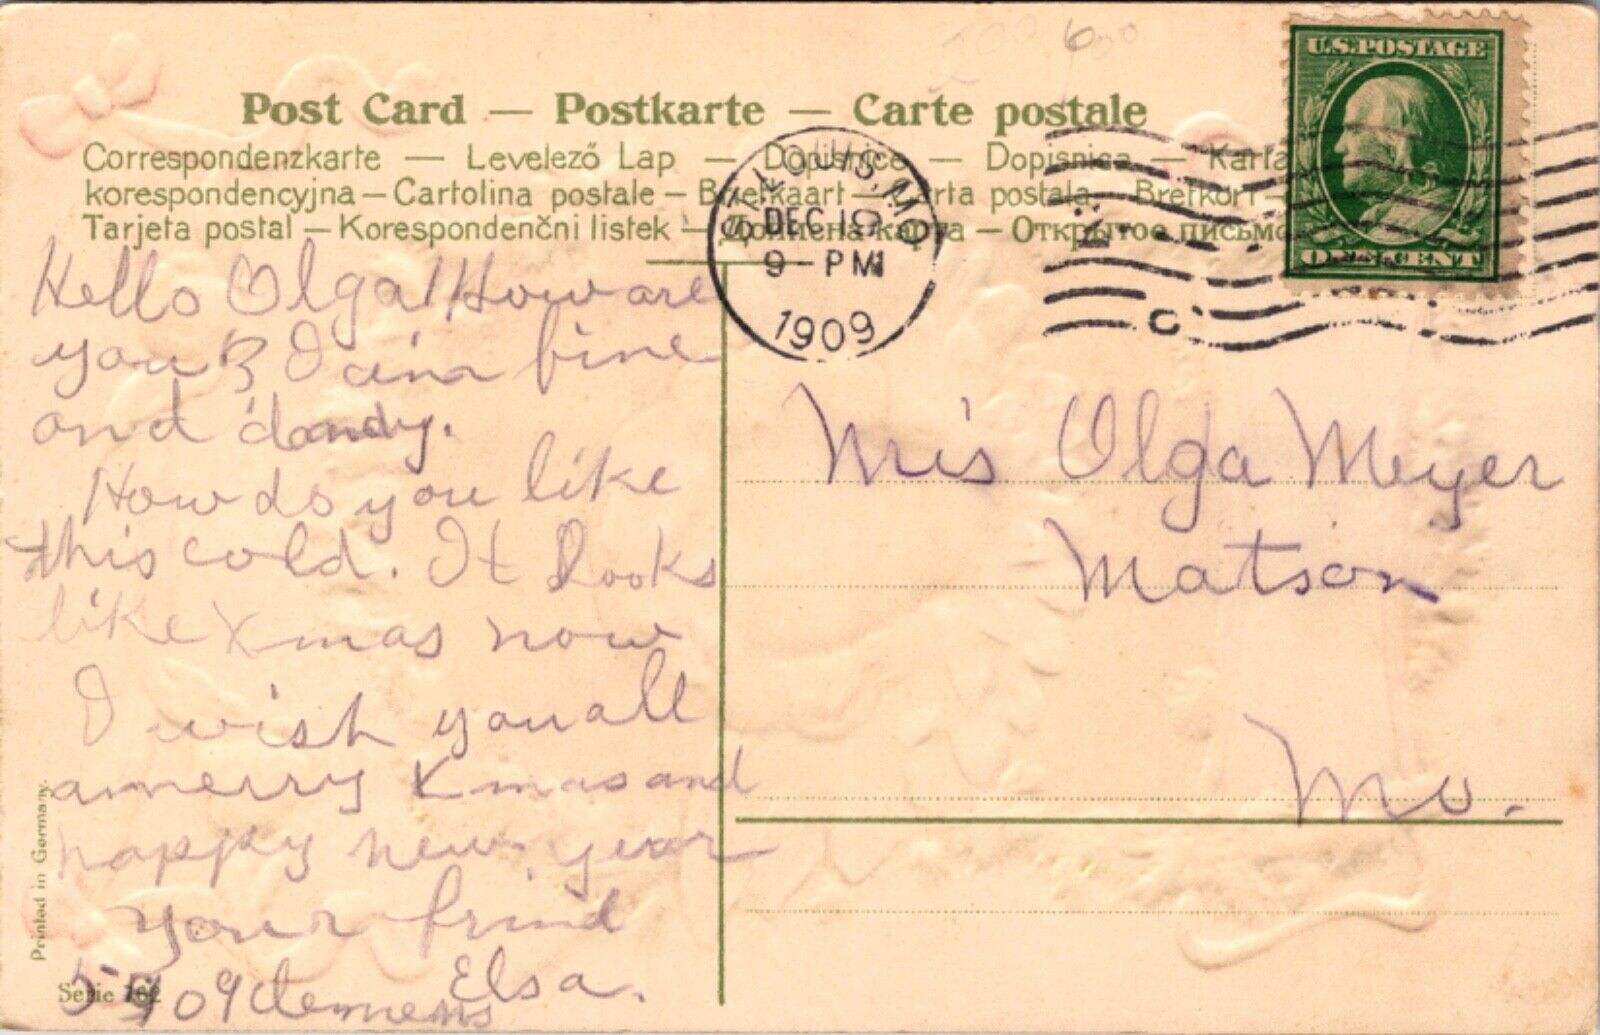 Post Card — Postkarte — Carte postale
Correspondenzkarte — Levelező Lap — Dopisnice — Dopisnica — Karta
korespondencyjna — Cartolina postale — Briefkaart — Karta postala — Brefkort —
Tarjeta postal — Korespondenčni listek — Дописна карта — Открытое письмо
U.S. POSTAGE
ONE CENT
ST. LOUIS, MO.
DEC 19
9 - PM
1909
Hello Olga! How are
you? I am fine
and dandy.
How do you like
this cold. It looks
like Xmas now
I wish you all
a merry Xmas and
happy new year
Your frind
Elsa.
5909 Clemens
Miss Olga Meyer
Matson
Mo.
Printed in Germany.
Serie 762